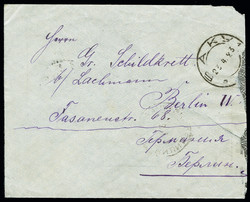 Herrn
Gr. Schildkrett
b/ Lachmann
Berlin W
Fasanenstr 68.
Германия
Берлин.
БАКУ